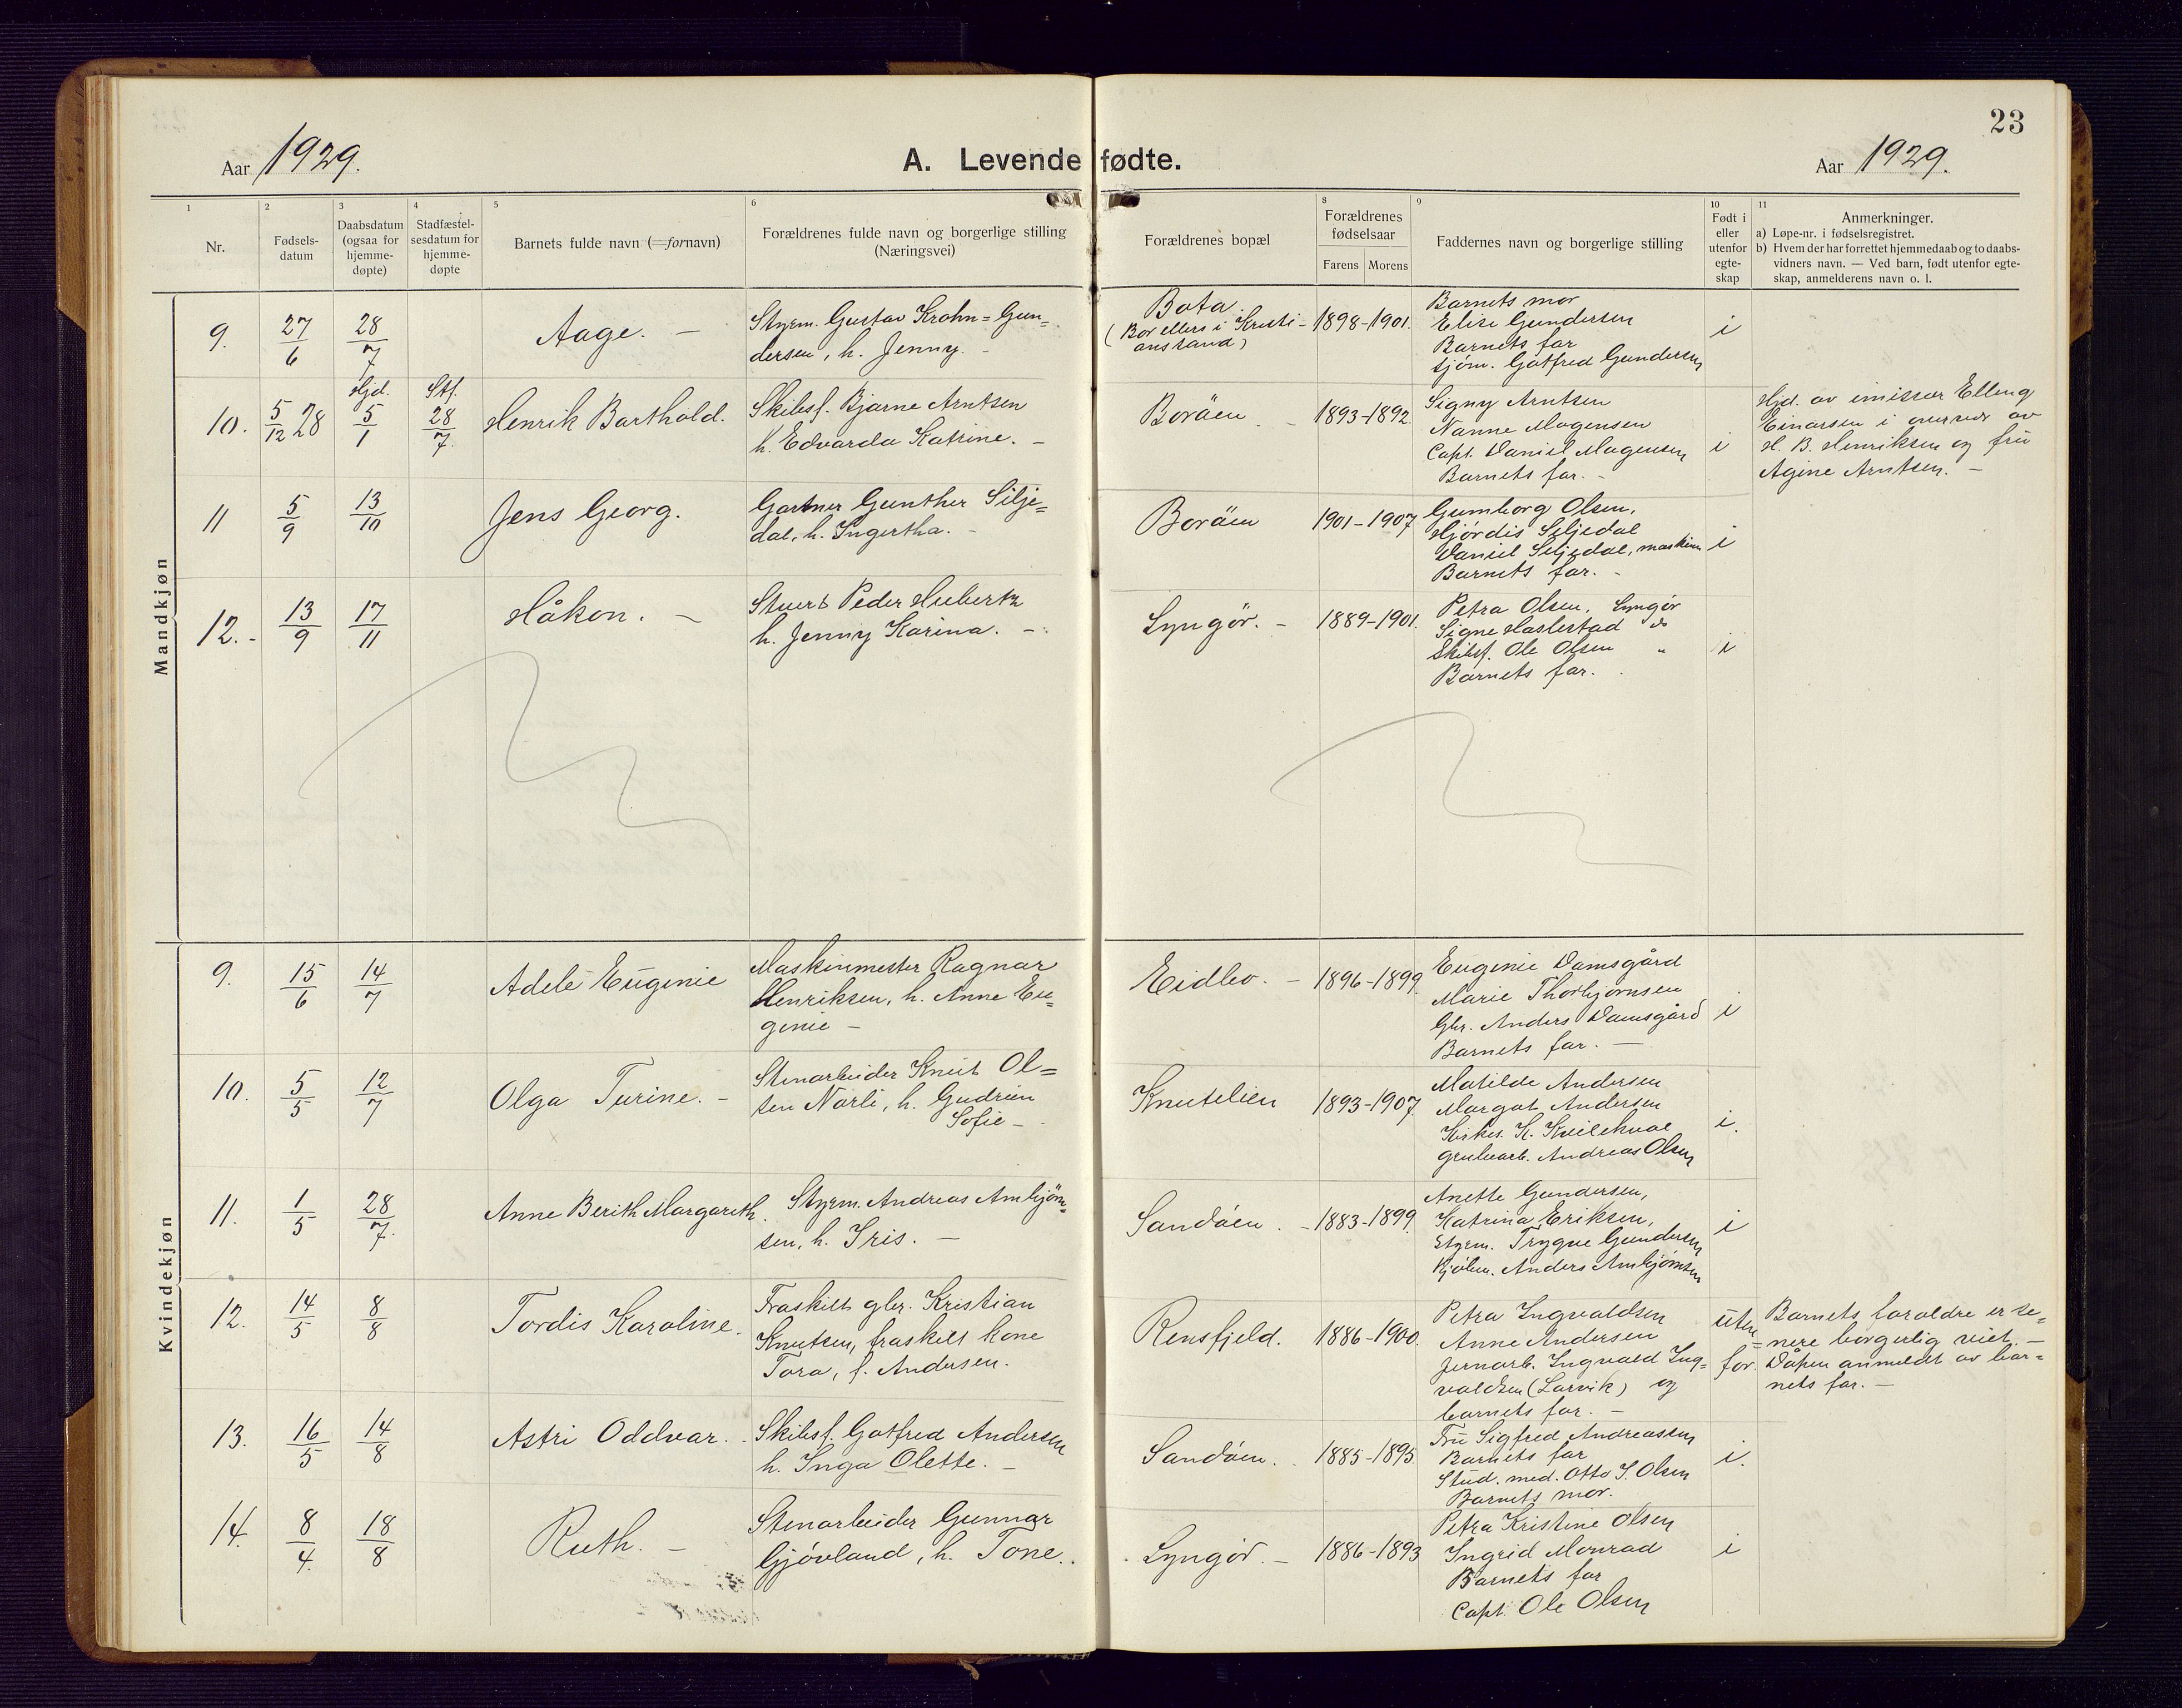 23
Aar 1929.
A. Levende fødte.
Aar 1929.
1
2
3
4
5
6
8
9
10
11
Nr.
Fødsels-
datum
Daabsdatum
(ogsaa for
hjemme-
døpte)
Stadfæstel-
sesdatum for
hjemme-
døpte
Barnets fulde navn (=fornavn)
Forældrenes fulde navn og borgerlige stilling
(Næringsvei)
Forældrenes bopæl
Forældrenes
fødselsaar
Farens Morens
Faddernes navn og borgerlige stilling
Født i
eller
utenfor
egte-
skap
Anmerkninger.
a) Løpe-nr. i fødselsregistret.
b) Hvem der har forrettet hjemmedaab og to daabs-
vidners navn. — Ved barn, født utenfor egte-
skap, anmelderens navn o. l.
Mandkjøn
9. 27/6 28/7 Aage. –
Styrm. Gustav Krohn=Gun=
dersen, h. Jenny. –
Bota
(Bor ellers i Kristi-
ansand)
1898-1901.
Barnets mor
Elise Gundersen
Barnets far
sjöm. Gotfred Gundersen
i
10. 5/12 28 Hjd. 5/1 Stf. 28/7. Henrik Barthold.
Skibsf. Bjarne Arntsen
h. Edvarda Katrine. –
Boröen –
1893-1892.
Signy Arntsen
Nanne Mogensen
Capt. Daniel Mogensen
Barnets far. –
i
Hjd. av emissær Elling
Einarsen i nærvær av
H. B. Henriksen og fru
Agine Arntsen. –
11 5/9 13/10 Jens Georg.
Gartner Gunther Silje=
dal, h. Ingertha. –
Boröen
1901-1907
Gumborg Olsen,
Hjørdis Seljedal
Daniel Seljedal, maskinn
Barnets far. –
i
12. - 13/9 17/11 Håkon. –
Stuert Peder Hubertz
h. Jenny Karina. –
Lyngör. –
1889-1901.
Petra Olsen, Lyngör
Signe Haslestad do
Skibsf. Ole Olsen "
Barnets far.
i
Kvindekjøn
9. 15/6 14/7 Adele Eugenie
Maskinmester Ragnar
Henriksen, h. Anne Eu=
genie –
Eidbo. –
1896-1899.
Eugenie Damsgård
Marie Thorbjørnsen
Gbr. Anders Damsgård
Barnets far. –
i
10. 5/5 12/7 Olga Turine. –
Stenarbeider Knut Ol=
sen Narli, h. Gudrun
Sofie –
Knutelien
1893-1907.
Matilde Andersen
Margot Andersen
Kirkes. K. Kveilehval
grubearb. Andreas Olsen
i.
11. 1/5 28/7. Anne Berith Margareth.
Styrm. Andreas Ambjörn=
sen, h. Iris. –
Sandöen. –
1883-1899.
Anette Gundersen,
Katrina Eriksen,
Styrm. Trygve Gundersen
Kjöbm. Anders Ambjörnsen
i
12. 14/5 8/8 Tordis Karoline.
Fraskilt gbr. Kristian
Knutsen, fraskilt kone
Tora, f. Andersen.
Rensfjeld.
1886-1900.
Petra Ingvaldsen
Anne Andersen
Jernarb. Ingvald Ing=
valdsen (Larvik) og
barnets far. –
uten=
for.
Barnets foreldre er se=
nere borgerlig viet. –
Dåpen anmeldt av bar=
nets far. –
13. 16/5 14/8 Astri Oddvar.
Skibsf. Gotfred Andersen
h. Inga Olette. –
Sandöen.
1885-1895.
Fru Sigfred Andreassen
Barnets far
Stud. med. Otto S. Olsen
Barnets mor.
i.
14. 8/4. 18/8 Ruth. –
Stenarbeider Gunnar
Gjövland, h. Tone.
Lyngör. –
1886-1893
Petra Kristine Olsen
Ingrid Monrad
Barnets far
Capt. Ole Olsen
i